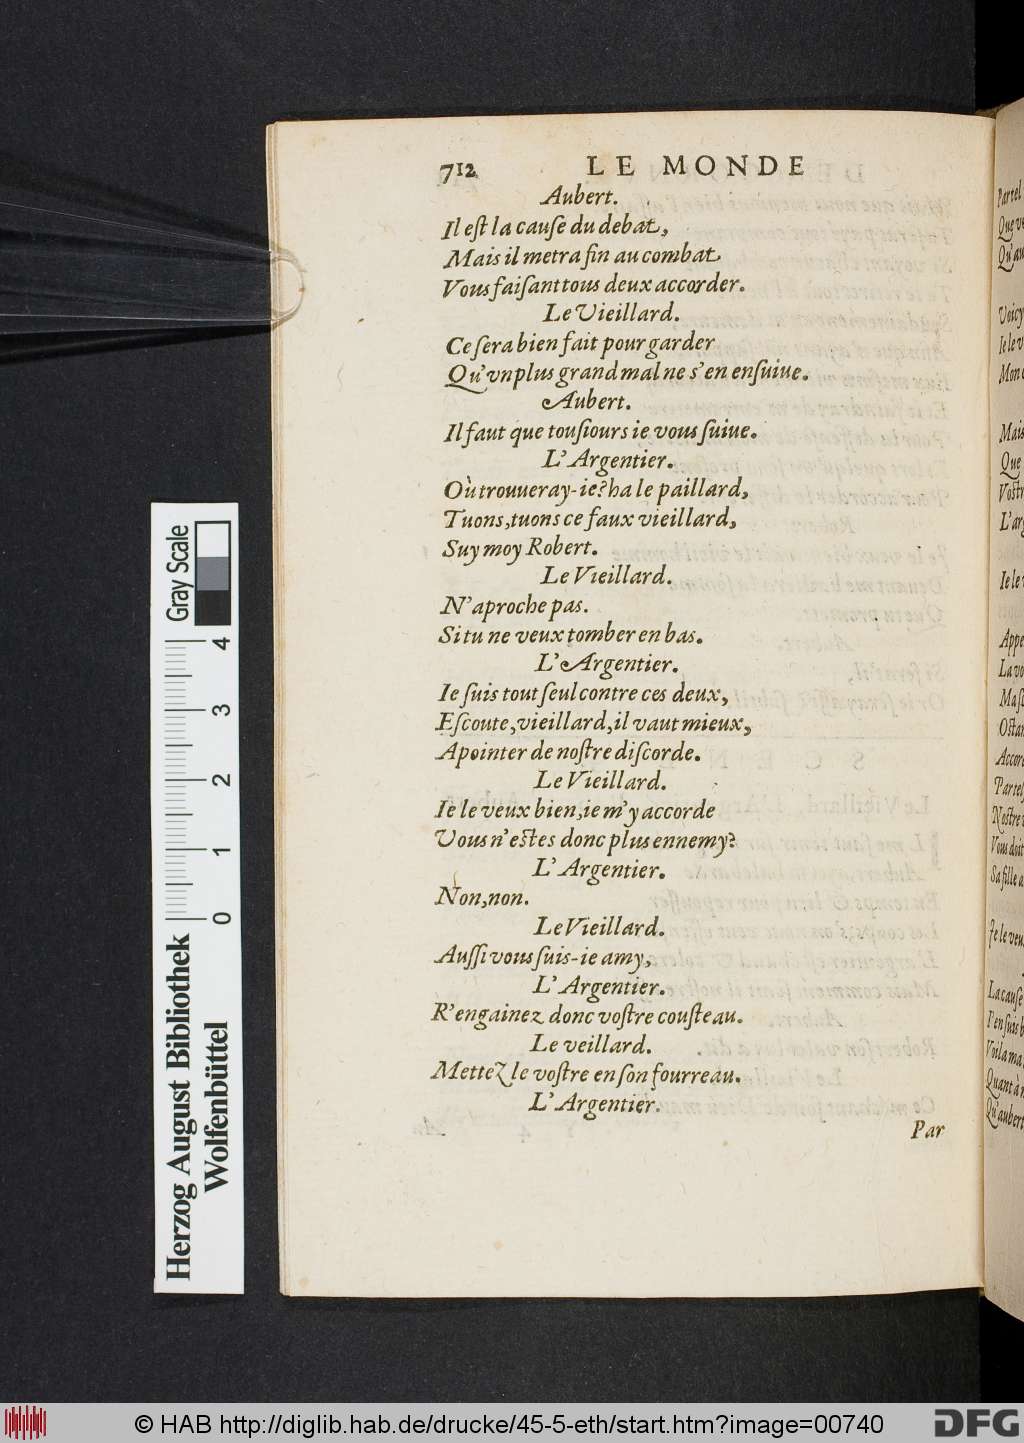 712 LE MONDE
Aubert.
Il eſt la cauſe du debat,
Mais il metra fin au combat
Vous faiſant tous deux accorder.
Le Vieillard.
Ce ſera bien fait pour garder
Qu'vn plus grand mal ne s'en enſuiue.
Aubert.
Il faut que touſiours ie vous ſuiue.
L'Argentier.
Où trouueray-ie? ha le paillard,
Tuons, tuons ce faux vieillard,
Suy moy Robert.
Le Vieillard.
N'aproche pas.
Si tu ne veux tomber en bas.
L'Argentier.
Ie ſuis tout ſeul contre ces deux,
Eſcoute, vieillard, il vaut mieux,
Apointer de noſtre diſcorde.
Le Vieillard.
Ie le veux bien, ie m'y accorde
Vous n'eſtes donc plus ennemy?
L'Argentier.
Non, non.
Le Vieillard.
Auſſi vous ſuis-ie amy,
L'Argentier.
R'engainez donc voſtre couſteau.
Le veillard.
Mettez le voſtre en ſon fourreau.
L'Argentier.
Par
Partel
Voicy
Ie le v
Mais
Que
Voſtr
L'arg
Ie le v
Appe
La vo
Oſtan
Accor
Noſtre
Vous doit
Sa fille a
Ie le veu
La cauſe
I'en ſuis b
Voila ma
Quant à
Qu'aubert
Gray Scale
4 3 2 1 0
Herzog August Bibliothek
Wolfenbüttel
© HAB http://diglib.hab.de/drucke/45-5-eth/start.htm?image=00740
DFG